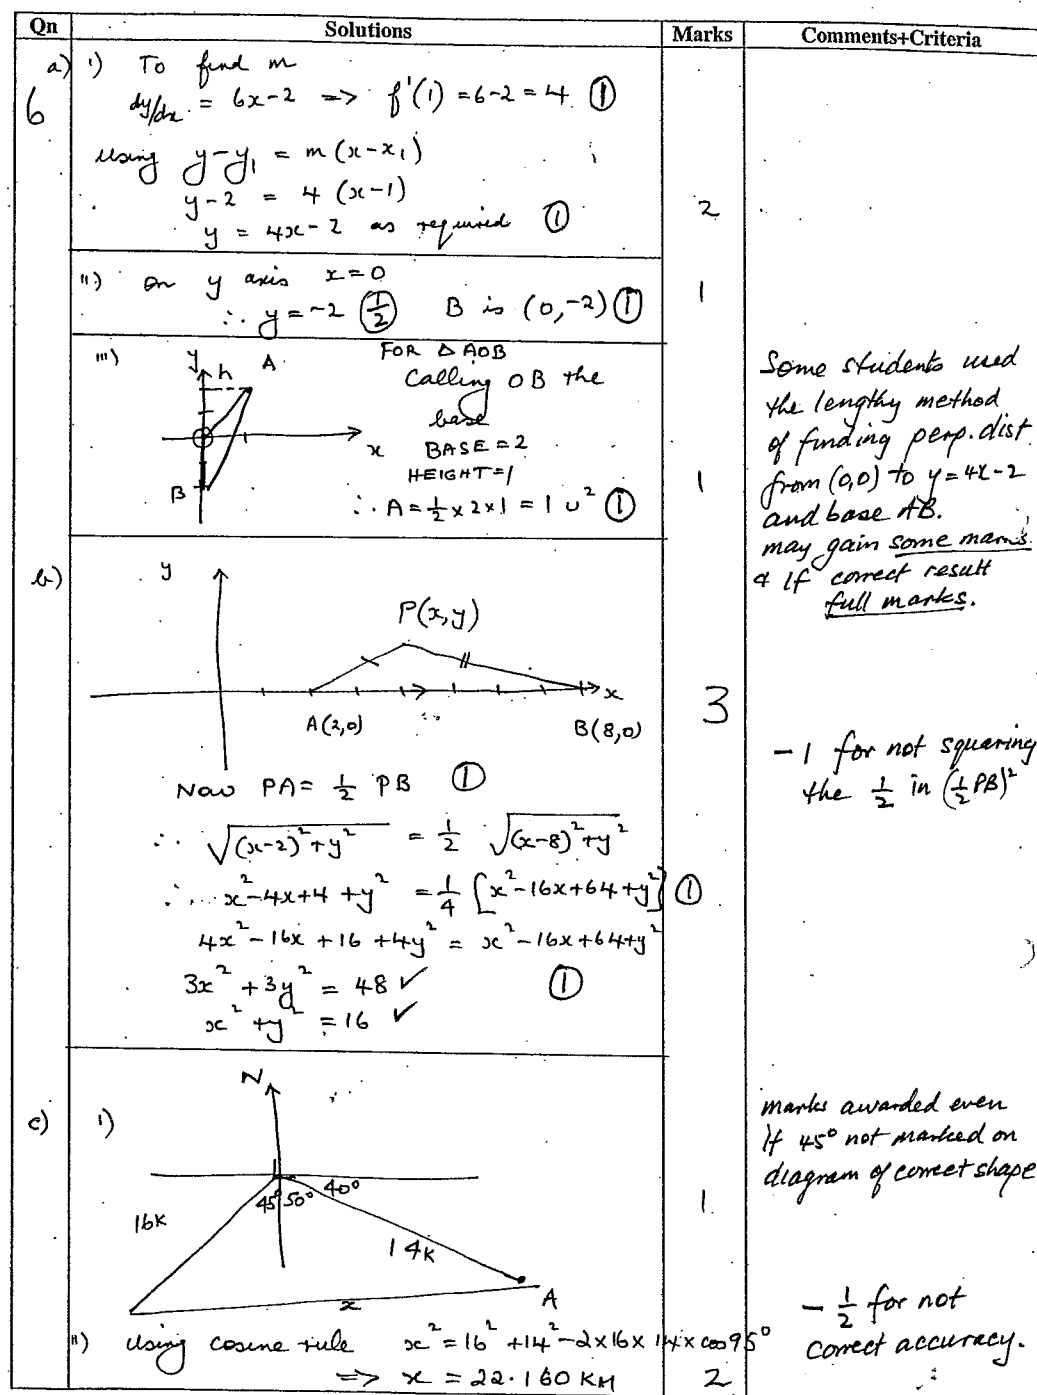 Qn Solutions Marks Comments+Criteria
6 a) i) To find m
dy/dx = 6x-2 => f'(1) = 6-2 = 4 ①
using y-y₁ = m(x-x₁)
y-2 = 4(x-1)
y = 4x-2 as required ① 2
ii) on y axis x=0
∴ y = -2 (½) B is (0,-2) ① 1
iii) y h A
x
B
FOR Δ AOB
Calling OB the
base
BASE = 2
HEIGHT = 1
∴ A = ½ × 2 × 1 = 1 u² ① 1
Some students used
the lengthy method
of finding perp. dist
from (0,0) to y = 4x-2
and base AB.
may gain some marks
& If correct result
full marks.
b) y
P(x,y)
x
A(2,0) B(8,0)
3
Now PA = ½ PB ①
∴ √((x-2)²+y²) = ½ √((x-8)²+y²)
∴ x²-4x+4+y² = ¼ [x²-16x+64+y²] ①
4x²-16x+16+4y² = x²-16x+64+y²
3x²+3y² = 48 ✓ ①
x²+y² = 16 ✓
-1 for not squaring
the ½ in (½PB)²
c) i) N
45° 50° 40°
16K 14K
x A
1
marks awarded even
If 45° not marked on
diagram of correct shape
ii) Using cosine rule x² = 16²+14²-2×16×14×cos95°
=> x = 22.160 KM 2
-½ for not
correct accuracy.